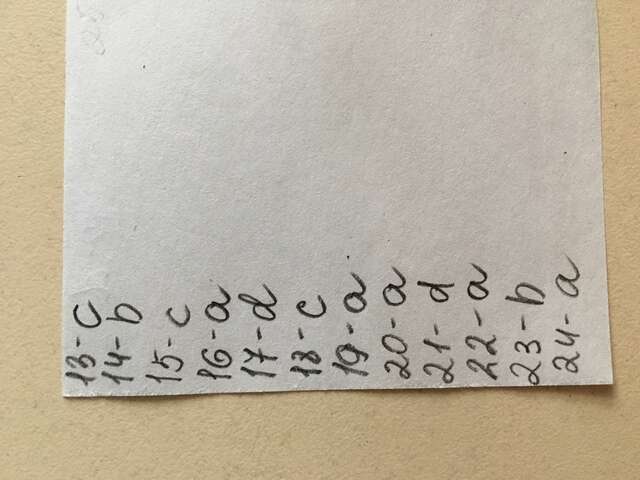 13-c
14-b
15-c
16-a
17-d
18-c
19-a
20-a
21-d
22-a
23-b
24-a